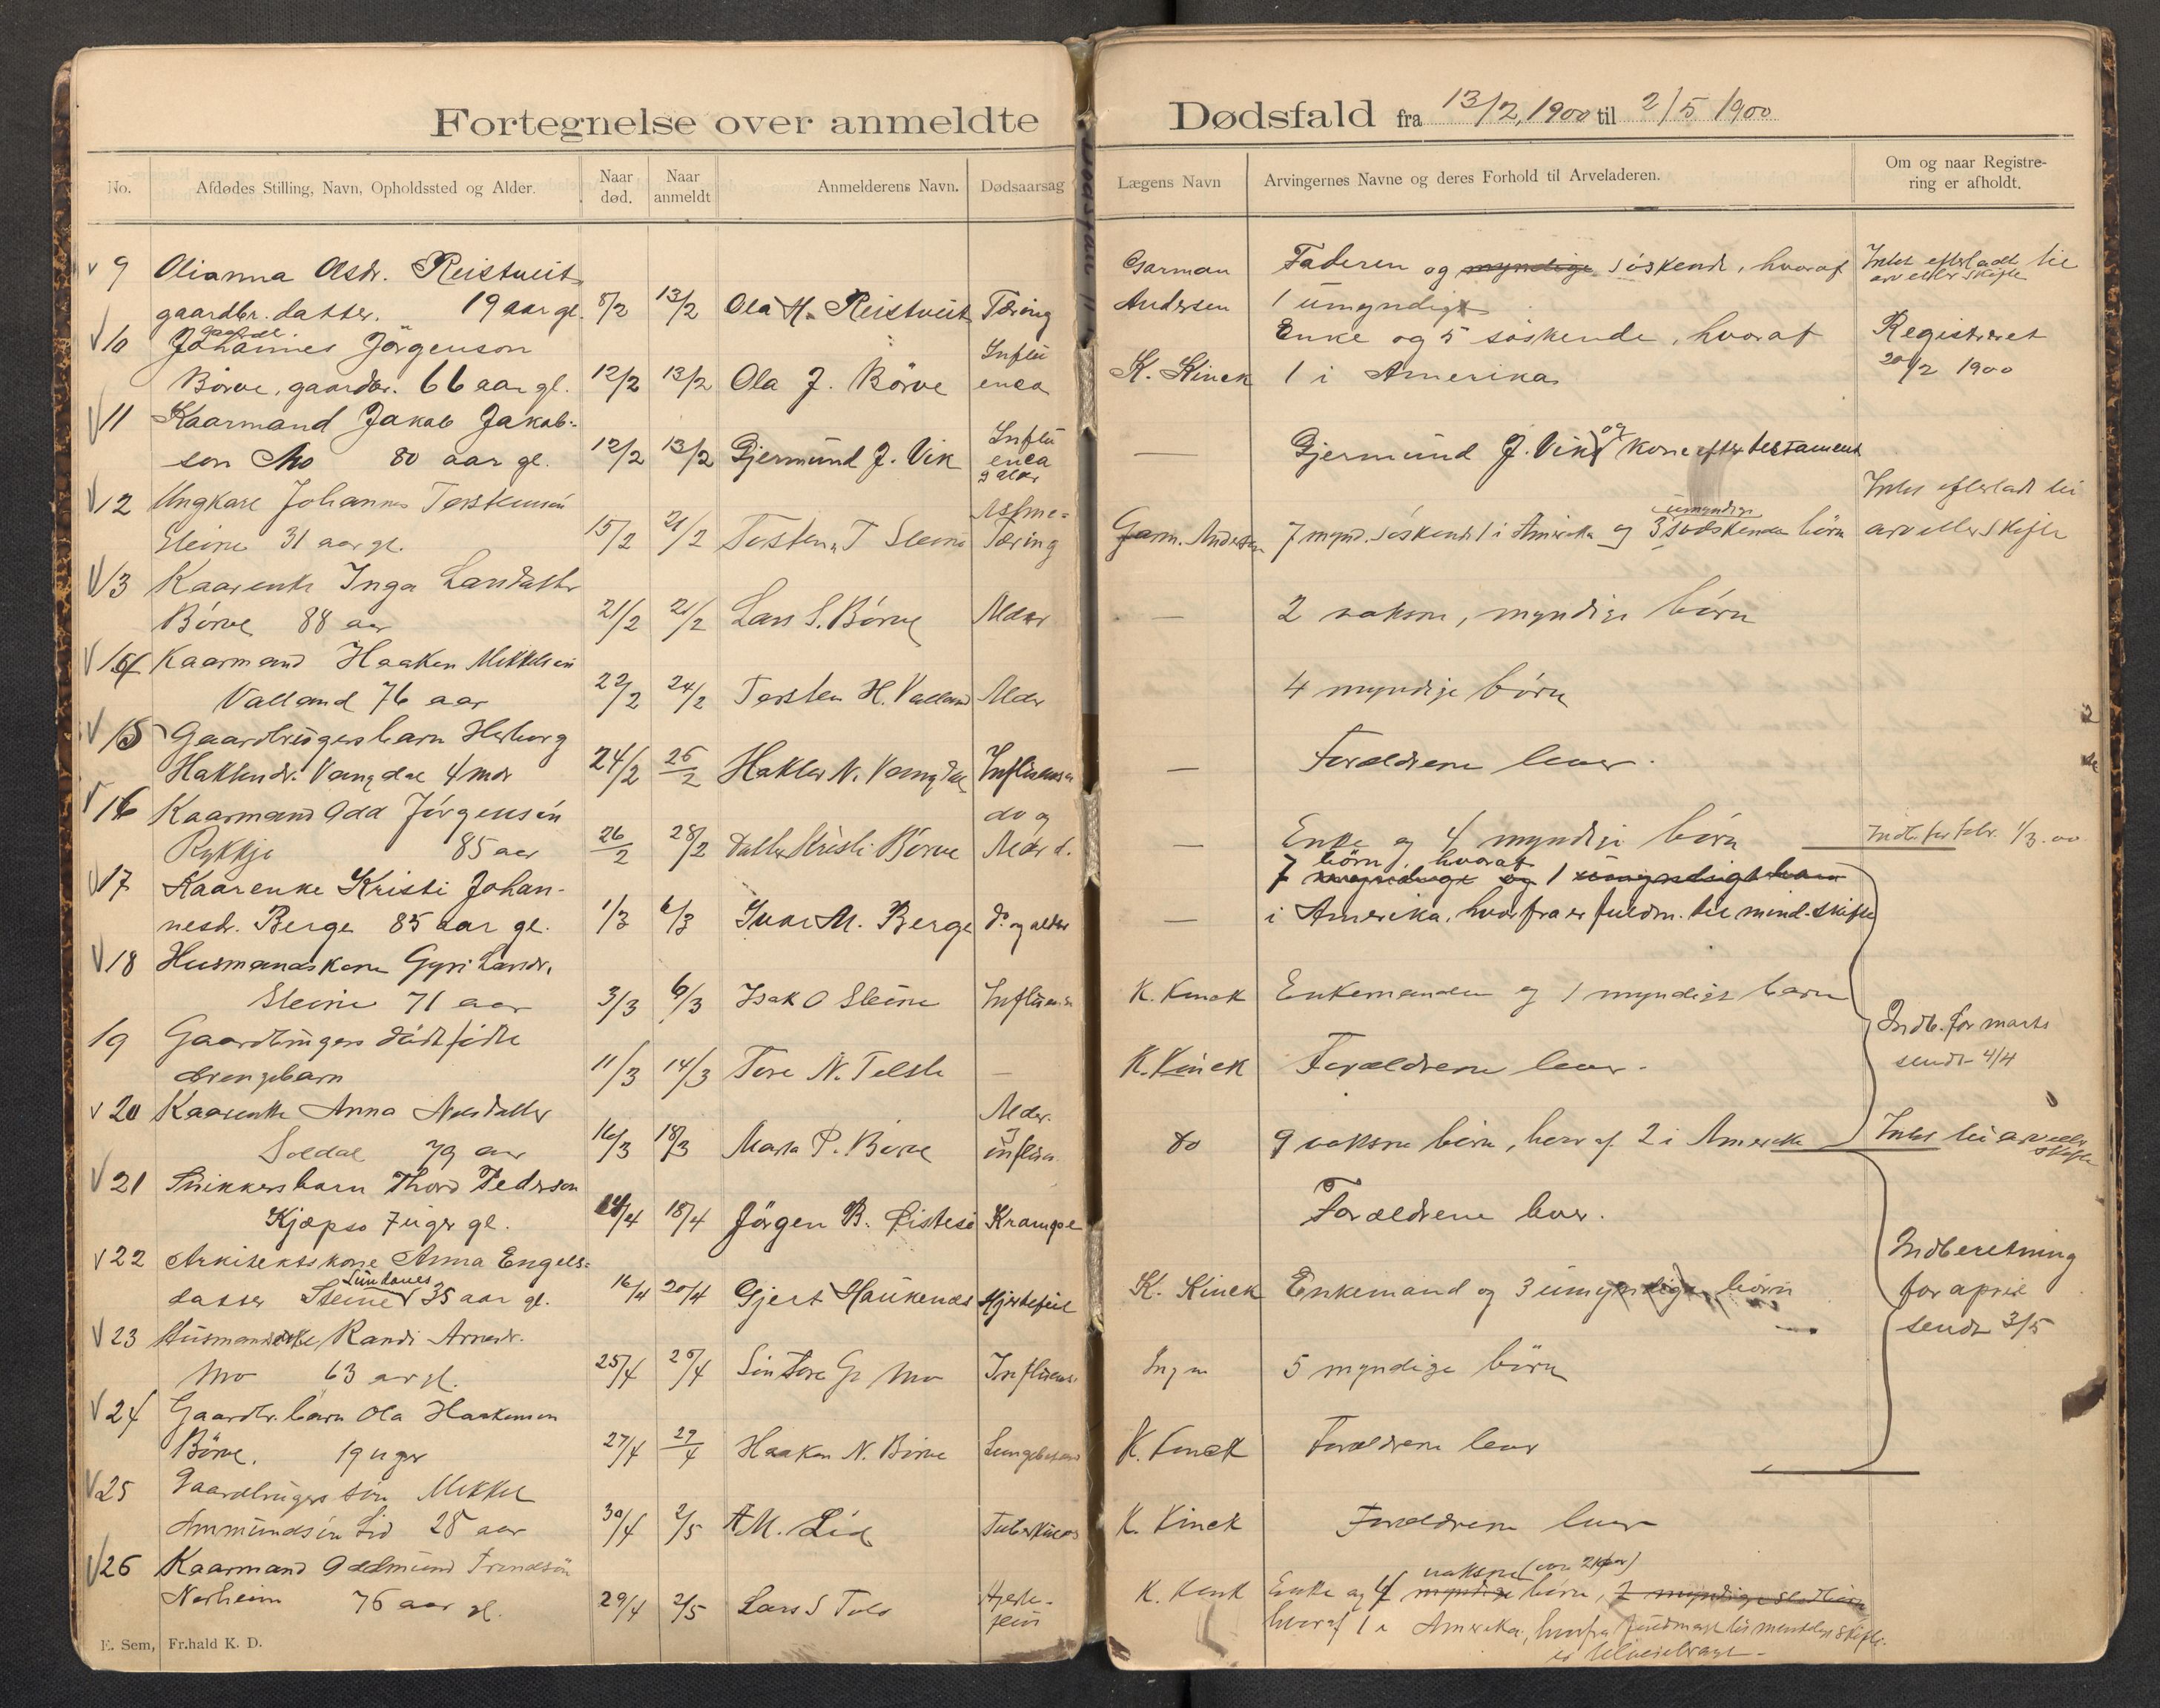 Fortegnelse over anmeldte Dødsfald fra 13/2, 1900 til 2/5 1900
No.
Afdødes Stilling, Navn, Opholdssted og Alder.
Naar død.
Naar anmeldt
Anmelderens Navn.
Dødsaarsag
Lægens Navn
Arvingernes Navne og deres Forhold til Arveladeren.
Om og naar Registre-
ring er afholdt.
9 Olianna Olsdr. Reistveit Garman Faderen og myndige söskende, hvoraf Intet efterladt til
gaardbr. datter. 19 aar gl. 8/2 13/2 Ola H. Reistveit Tæring Andersen 1 umyndigt arv eller skifte
10 Johannes Jörgenson Influ Enke og 5 söskende, hvoraf Registreret
Börve, gaardbr. 66 aar gl. 12/2 13/2 Ola J. Börve enca K. Kinck 1 i Amerika 20/2 1900
11 Kaarmand Jakob Jakob- Influ
son Mo 80 aar gl. 12/2 13/2 Gjermund J. Vik enca — Gjermund J. Vik og kone efter testament
g alder
12 Ungkarl Johannes Torstensön Astme- umyndige Intet efterladt til
Steine 31 aar gl. 15/2 21/2 Torsten T Steine Tæring Garm. Andersen 7 mynd. söskende 1 i Amerika og 3 sødskendes börn arv eller skifte
13 Kaarenke Inga Larsdatter
Börve 88 aar 21/2 21/2 Lars S. Börve Alder — 2 voksne, myndige börn
14 Kaarmand Haaken Mikkelsen
Valland 76 aar 22/2 24/2 Torsten H. Valland Alder — 4 myndige börn
15 Gaardbrugersbarn Herborg
Hakleendr. Vangdal 4 mdr 24/2 26/2 Hakler N. Vangdal Influensa — Forældrene lever.
16 Kaarmand Odd Jörgensön do og
Rykkje 85 aar 26/2 28/2 Datter Kristi Börve Alder d. — Enke og 4 myndige börn Indb. for febr. 1/3. 00
17 Kaarenke Kristi Johan- 7 börn, hvoraf myndige og 1 umyndigt barn
nesdr. Berge 85 aar gl. 1/3 6/3 Ivar M. Berge do og alder — i Amerika, hvorfra er fuldm. til mind. skifte
18 Husmandskone Gyri Larsdr.
Steine 71 aar 3/3 6/3 Isak O Steine Influensa K. Kinck Enkemanden og 1 myndigt barn
19 Gaardbrugers dödfödte Indb. for marts
drengebarn 11/3 14/3 Tore N. Telste — K. Kinck Forældrene lever. sendt 4/4
20 Kaarenke Anna Nilsdatter Alder
Soldal 79 aar 16/3 18/3 Marta P. Börve g influen. do 9 voksne börn, hvoraf 2 i Amerika Intet til arv eller skifte
21 Snikkersbarn Thord Pederson
Kjæpso 7 uger gl. 14/4 18/4 Jörgen B. Östesö Krampe Forældrene lever.
22 Arkitektskone Anna Engels-
datter Steine Sundanes 35 aar gl. 16/4 20/4 Gjert Haukenæs Hjertefeil K. Kinck Enkemand og 3 umyndige börn Indberetning
for april
sendt 3/5
23 Husmandsenke Randi Arnesdr.
Mo 63 aar gl. 25/4 26/4 Sön Tore G. Mo Influensa Ingen 5 myndige börn
24 Gaardbr. barn Ola Haakenson
Börve. 19 uger 27/4 27/4 Haaken N. Börve Lungebetænd K. Kinck Forældrene lever
25 Gaardbrugers sön Mikkel
Ammundsön Lid 28 aar 30/4 2/5 A M. Lid Tuberkulos K. Kinck Forældrene lever
26 Kaarmand Oddmund Trondsön voksne (over 21 aar)
Norheim 76 aar gl. 29/4 2/5 Lars S Tolo Hjerte- feil K. Kinck Enke og 4 myndige börn, 2 myndige
hvoraf 1 i Amerika, hvorfra fuldmagt til mindeligt skifte
er tilveiebragt.
E. Sem, Fr.hald K. D.